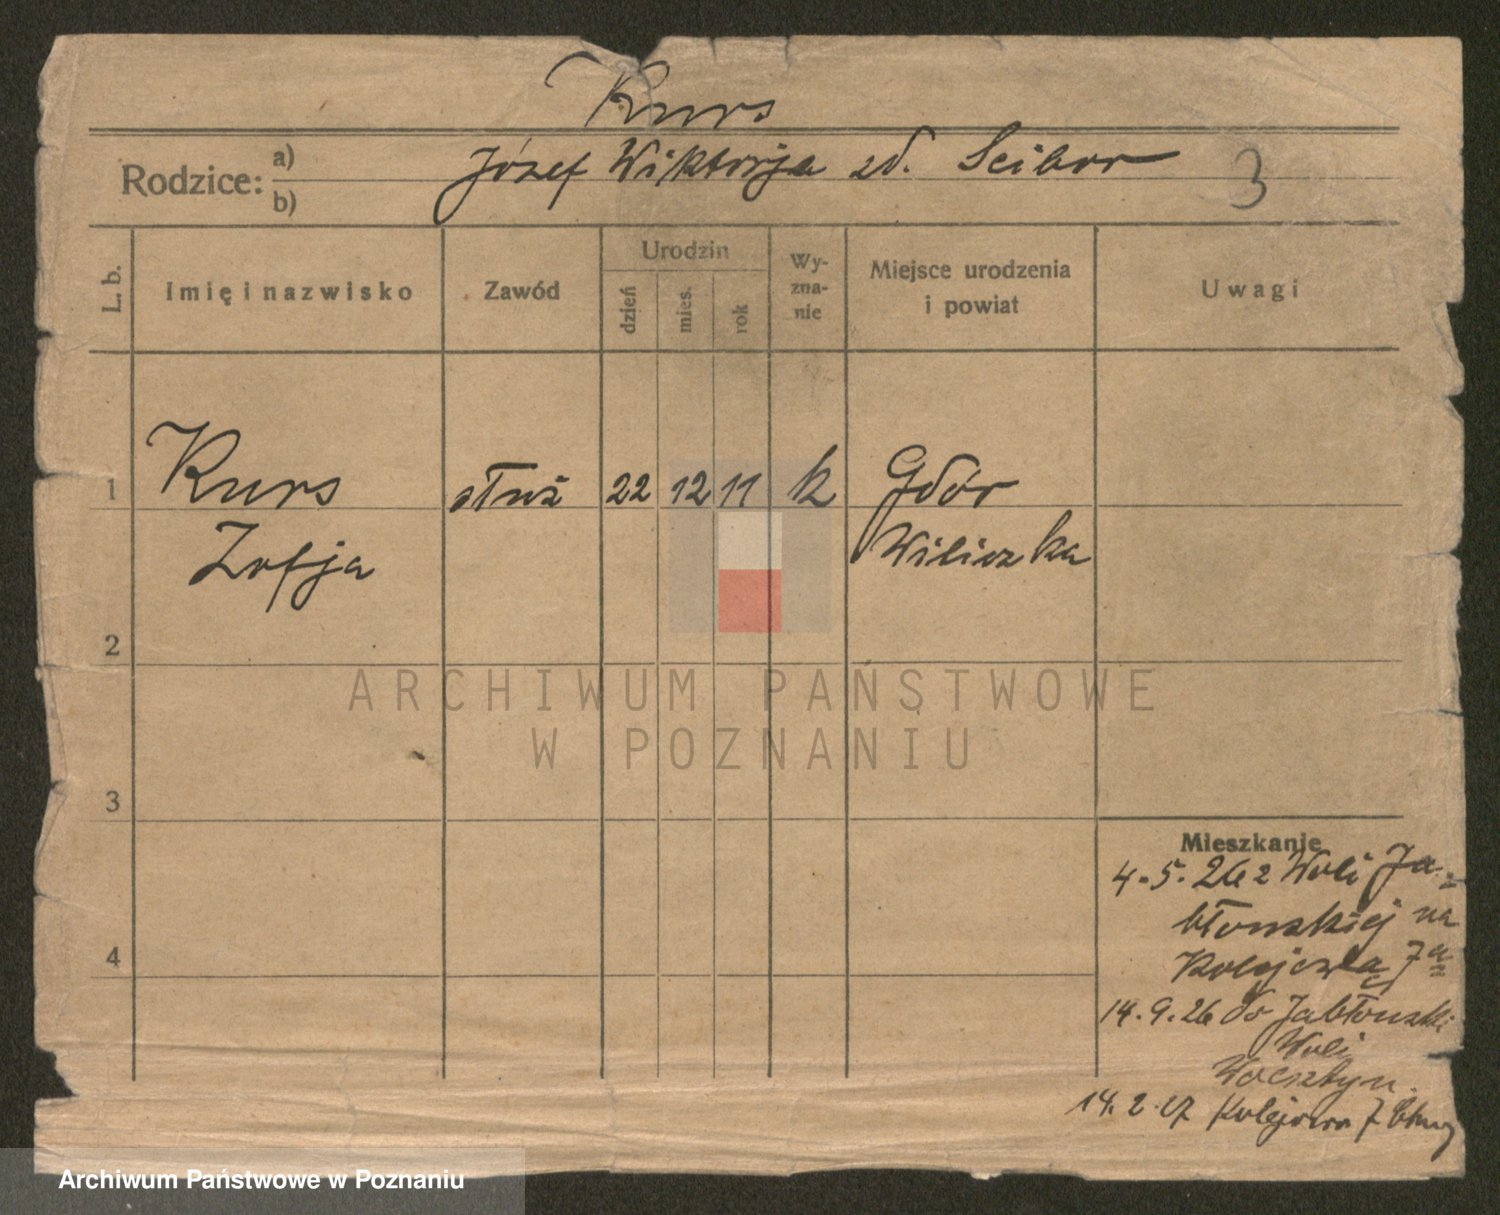 Kurs
Rodzice: a) b) Józef Wiktorja zd. Scibor
3
L. b.
Imię i nazwisko
Zawód
Urodzin
dzień
mies.
rok
Wy-
zna-
nie
Miejsce urodzenia
i powiat
Uwagi
1 Kurs służ 22 12 11 k Gdór
Zofja Wiliczka
2
3
4
Mieszkanie
4.5.26 z Woli Ja-
błonskiej na
Kolejową 7a
14.9.26 do Jabłonski
Woli
Wolsztyn.
14.2.27 Kolejowa 7
ARCHIWUM PAŃSTWOWE
W POZNANIU
Archiwum Państwowe w Poznaniu